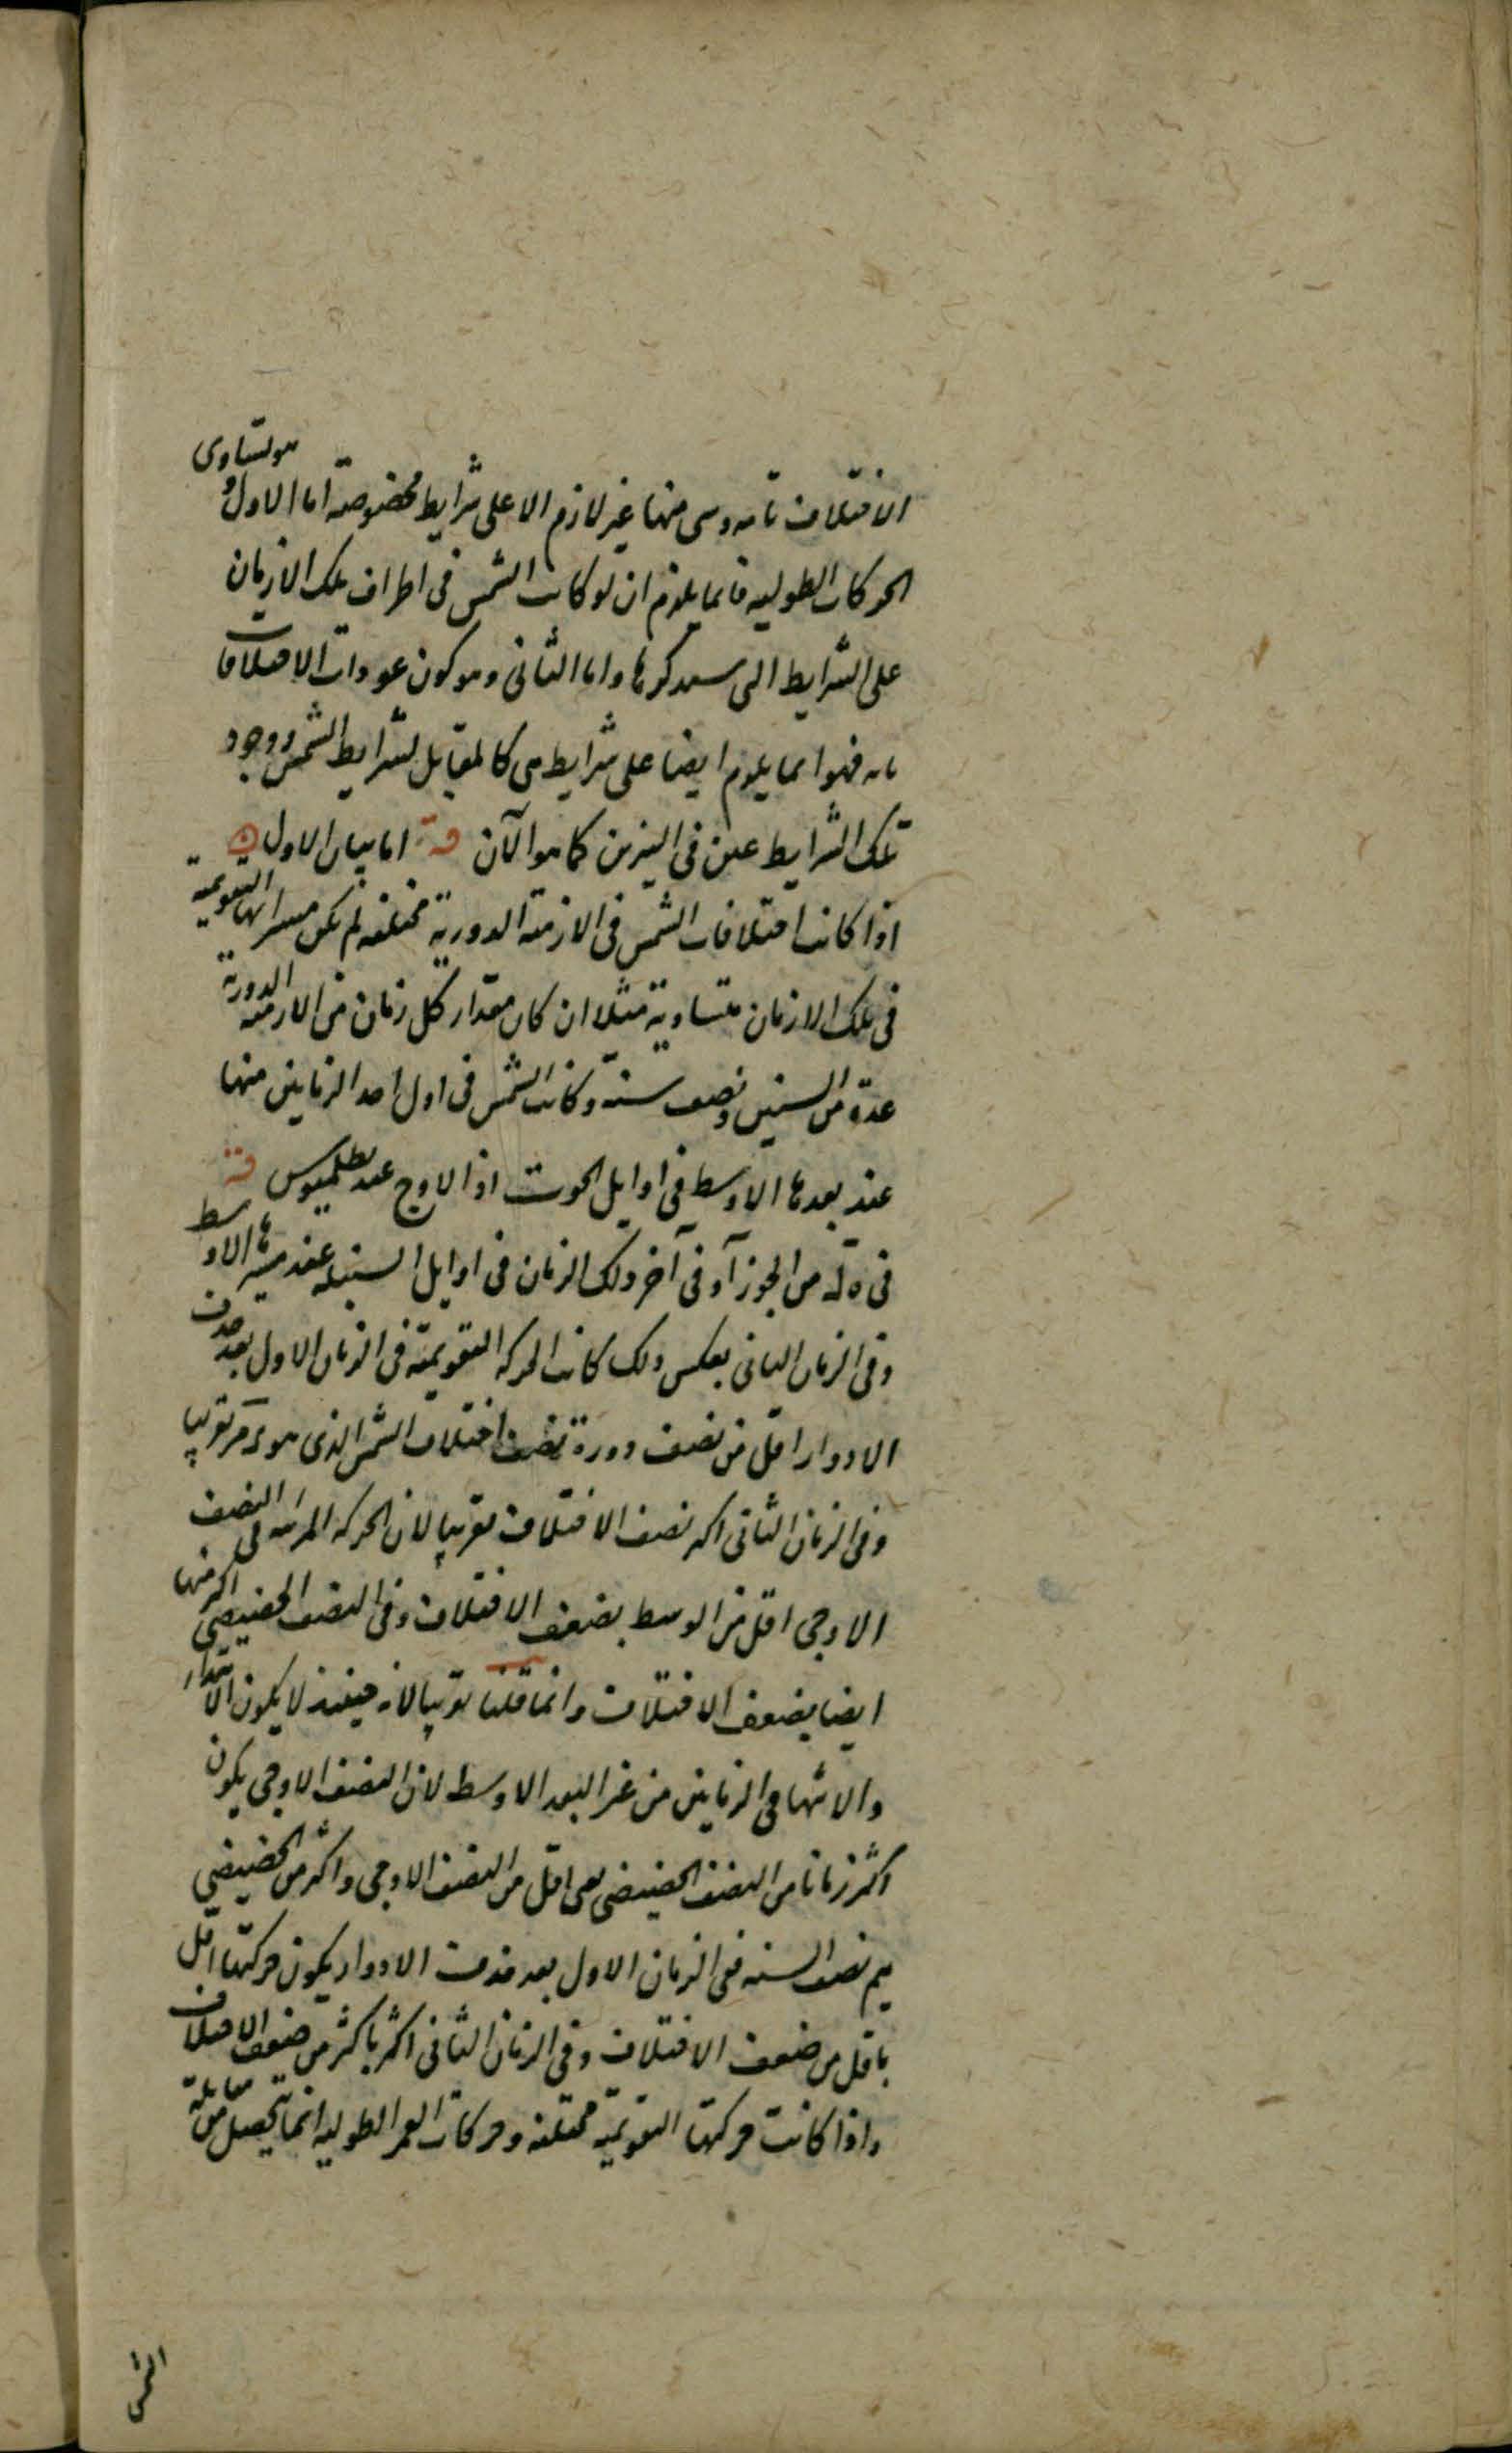 الاختلاف تامه وسى منها غير لازم الا على شرايط مخصوصة اما الاول وهو تساوى
الحركات الطوليه فانما يلزم ان لو كانت الشمس فى اطراف تلك الازمان
على الشرايط التى سنذكرها واما الثانى وهو كون عودات الاختلافات
تامه فهو انما يلزم ايضا على شرايط هى كالمقابل لشرايط الشمس ووجود
تلك الشرايط فى النيرين كما هو الآن اما بيان الاول
اذا كانت اختلافات الشمس فى الازمنة الدورية مختلفه لم يكن مسيراتها التقويمية
فى تلك الازمان متساوية مثلا ان كان مقدار كل زمان من الازمنه الدورية
عدة من السنين ونصف سنة وكانت الشمس فى اول احد الزمانين منها
عند بعدها الاوسط فى اوايل الحوت اذ الاوج عند بطلميوس
فى ه ل من الجوزآ وفى آخر ذلك الزمان فى اوايل السنبله عند مسيرها الاوسط
وفى الزمان الثانى بعكس ذلك كانت الحركه التقويمية فى الزمان الاول بعد حذف
الادوار اقل من نصف دورة بضعف اختلاف الشمس الذى هو تقريبا
وفى الزمان الثانى اكثر بضعف الاختلاف تقريبا لان الحركه المرئيه فى النصف
الاوجى اقل من الوسط بضعف الاختلاف وفى النصف الحضيضى اكثر منها
ايضا بضعف الاختلاف وانما قلنا تقريبا لانه حينئذ لا يكون الابتداء
والانتها فى الزمانين من غير البعد الاوسط لان النصف الاوجى يكون
اكثر زمانا من النصف الحضيضى فهى اقل من النصف الاوجى واكثر من الحضيضى
يتم نصف السنه ففى الزمان الاول بعد حذف الادوار يكون حركتها اقل
باقل من ضعف الاختلاف وفى الزمان الثانى اكثر باكثر من ضعف الاختلاف
واذا كانت حركتها التقويمية مختلفه وحركات القمر الطوليه انما يتحصل من مقابلة
الشمس